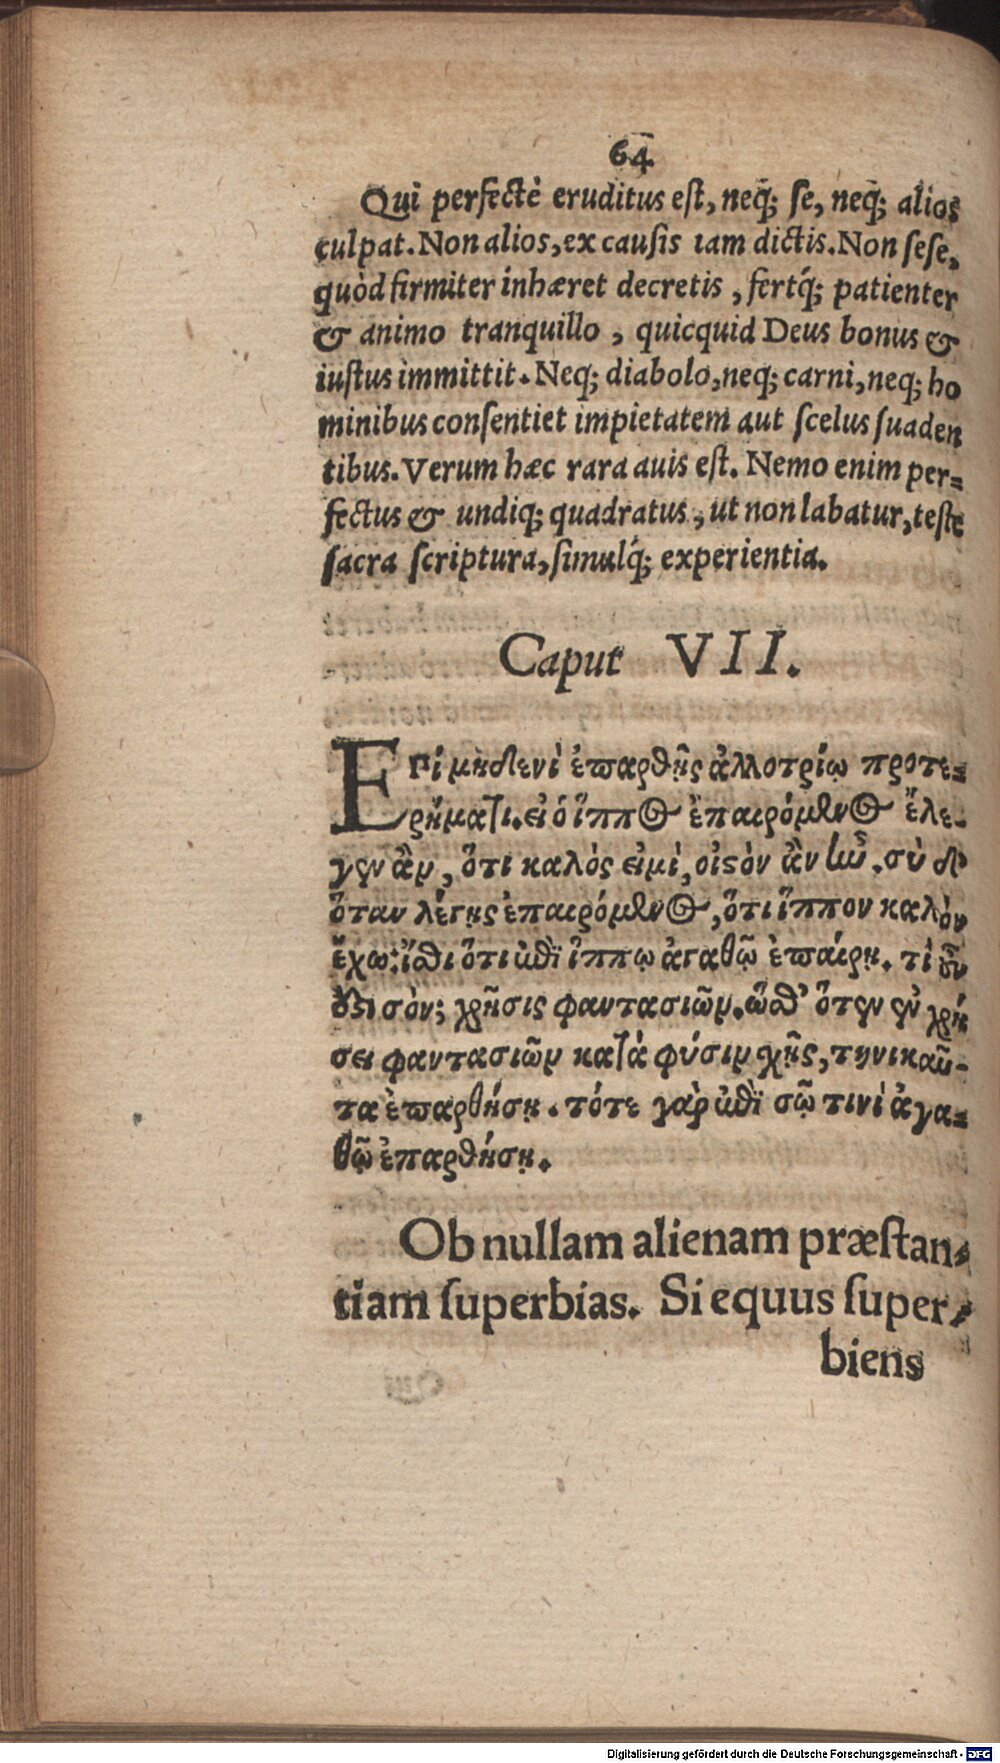 64
Qui perfectè eruditus est, neq; se, neq; alios
culpat. Non alios, ex causis iam dictis. Non sese,
quòd firmiter inhæret decretis, fertq́; patienter
& animo tranquillo, quicquid Deus bonus &
iustus immittit. Neq; diabolo, neq; carni, neq; ho
minibus consentiet impietatem aut scelus suaden
tibus. Verum hæc rara auis est. Nemo enim per-
fectus & undiq; quadratus, ut non labatur, teste
sacra scriptura, simulq́; experientia.
Caput VII.
Επί μηδενὶ ἐπαρθῇς ἀλλοτρίῳ προτε-
ρήματι. εἰ ὁ ἵππος ἐπαιρόμενος ἔλε-
γεν ἂν, ὅτι καλός εἰμὶ, οἰστὸν ἂν ἦν. σὺ δ
ὅταν λέγῃς ἐπαιρόμενος, ὅτι ἵππον καλὸν
ἔχω: ἴσθι ὅτι ἐπὶ ἵππῳ ἀγαθῷ ἐπαίρῃ. τί οὖν
ἐστι σὸν; χρῆσις φαντασιῶν. ὥσθ' ὅταν ἐν χρή
σει φαντασιῶν κατὰ φύσιν ἔχῃς, τηνικαῦ-
τα ἐπαρθήσῃ. τότε γὰρ ἐπὶ σῷ τινὶ ἀγα-
θῷ ἐπαρθήσῃ.
Ob nullam alienam præstan-
tiam superbias. Si equus super-
biens
Digitalisierung gefördert durch die Deutsche Forschungsgemeinschaft - DFG